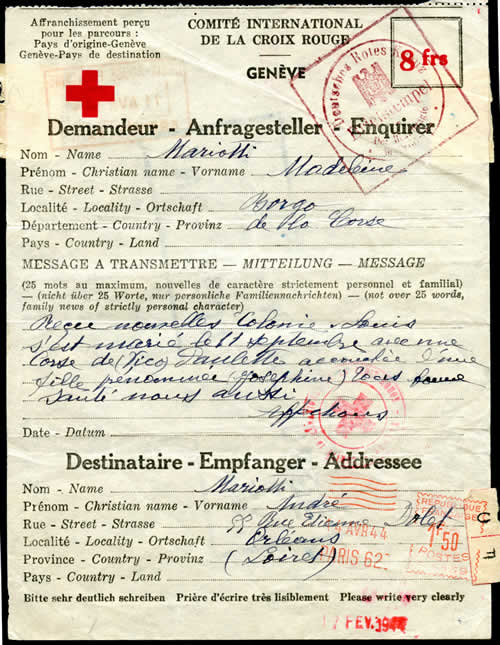 Affranchissement perçu
pour les parcours :
Pays d'origine-Genève
Genève-Pays de destination
COMITÉ INTERNATIONAL
DE LA CROIX ROUGE
GENÈVE
8 frs
Deutsches Rotes
Demandeur - Anfragesteller - Enquirer
Nom - Name Mariotti
Prénom - Christian name - Vorname Madeleine
Rue - Street - Strasse
Localité - Locality - Ortschaft Borgo
Département - Country - Provinz de la Corse
Pays - Country - Land
MESSAGE A TRANSMETTRE — MITTEILUNG — MESSAGE
(25 mots au maximum, nouvelles de caractère strictement personnel et familial)
— (nicht über 25 Worte, nur persönliche Familiennachrichten) — (not over 25 words,
family news of strictly personal character)
Reçu nouvelles Colonie Louis
s'est marié le 11 septembre avec une
Corse de (Vico) Paulette accouchée d'une
fille prénommée (Josephine) tous bonne
santé nous aussi
Date - Datum
Destinataire - Empfanger - Addressee
Nom - Name Mariotti
Prénom - Christian name - Vorname André
Rue - Street - Strasse 55 Rue Etienne Dolet
Localité - Locality - Ortschaft Orleans
Province - Country - Provinz (Loiret)
Pays - Country - Land
44
PARIS 62
REPUBLIQUE
1.50
POSTES
Bitte sehr deutlich schreiben Prière d'écrire très lisiblement Please write very clearly
FEV. 1944